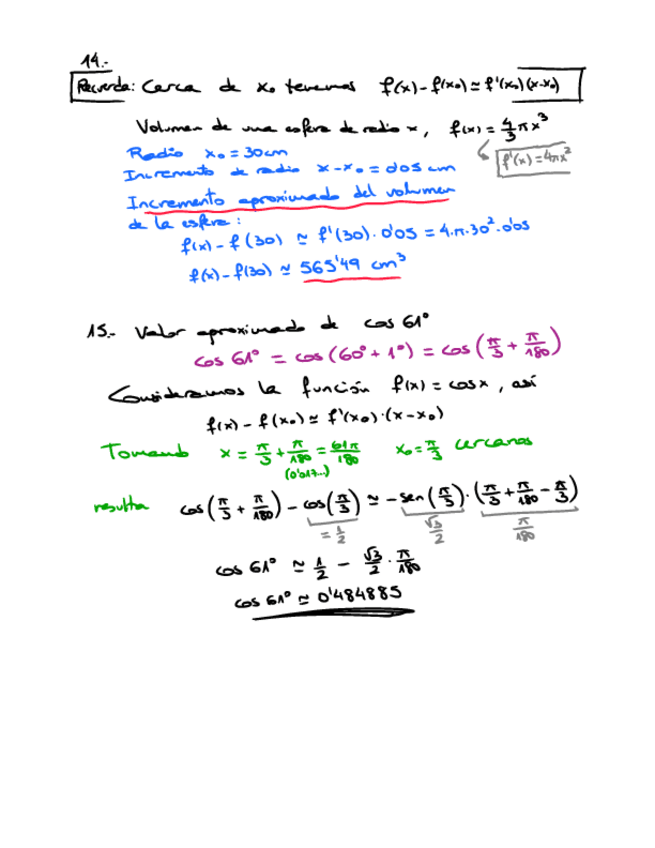 14.-
Recuerda: Cerca de x₀ tenemos f(x)-f(x₀) ≃ f'(x₀)(x-x₀)
Volumen de una esfera de radio x, f(x) = 4/3 πx³
f'(x) = 4πx²
Radio x₀ = 30 cm
Incremento de radio x-x₀ = 0'05 cm
Incremento aproximado del volumen
de la esfera:
f(x) - f(30) ≃ f'(30) · 0'05 = 4·π·30²·0'05
f(x) - f(30) ≃ 565'49 cm³
15.- Valor aproximado de cos 61º
cos 61º = cos (60º + 1º) = cos (π/3 + π/180)
Consideramos la función f(x) = cos x, así
f(x) - f(x₀) ≃ f'(x₀)·(x-x₀)
Tomando x = π/3 + π/180 = 61π/180 x₀ = π/3 cercanos
(0'017...)
resulta cos (π/3 + π/180) - cos (π/3) ≃ - sen (π/3) · (π/3 + π/180 - π/3)
= 1/2 √3/2 π/180
cos 61º ≃ 1/2 - √3/2 · π/180
cos 61º ≃ 0'484885